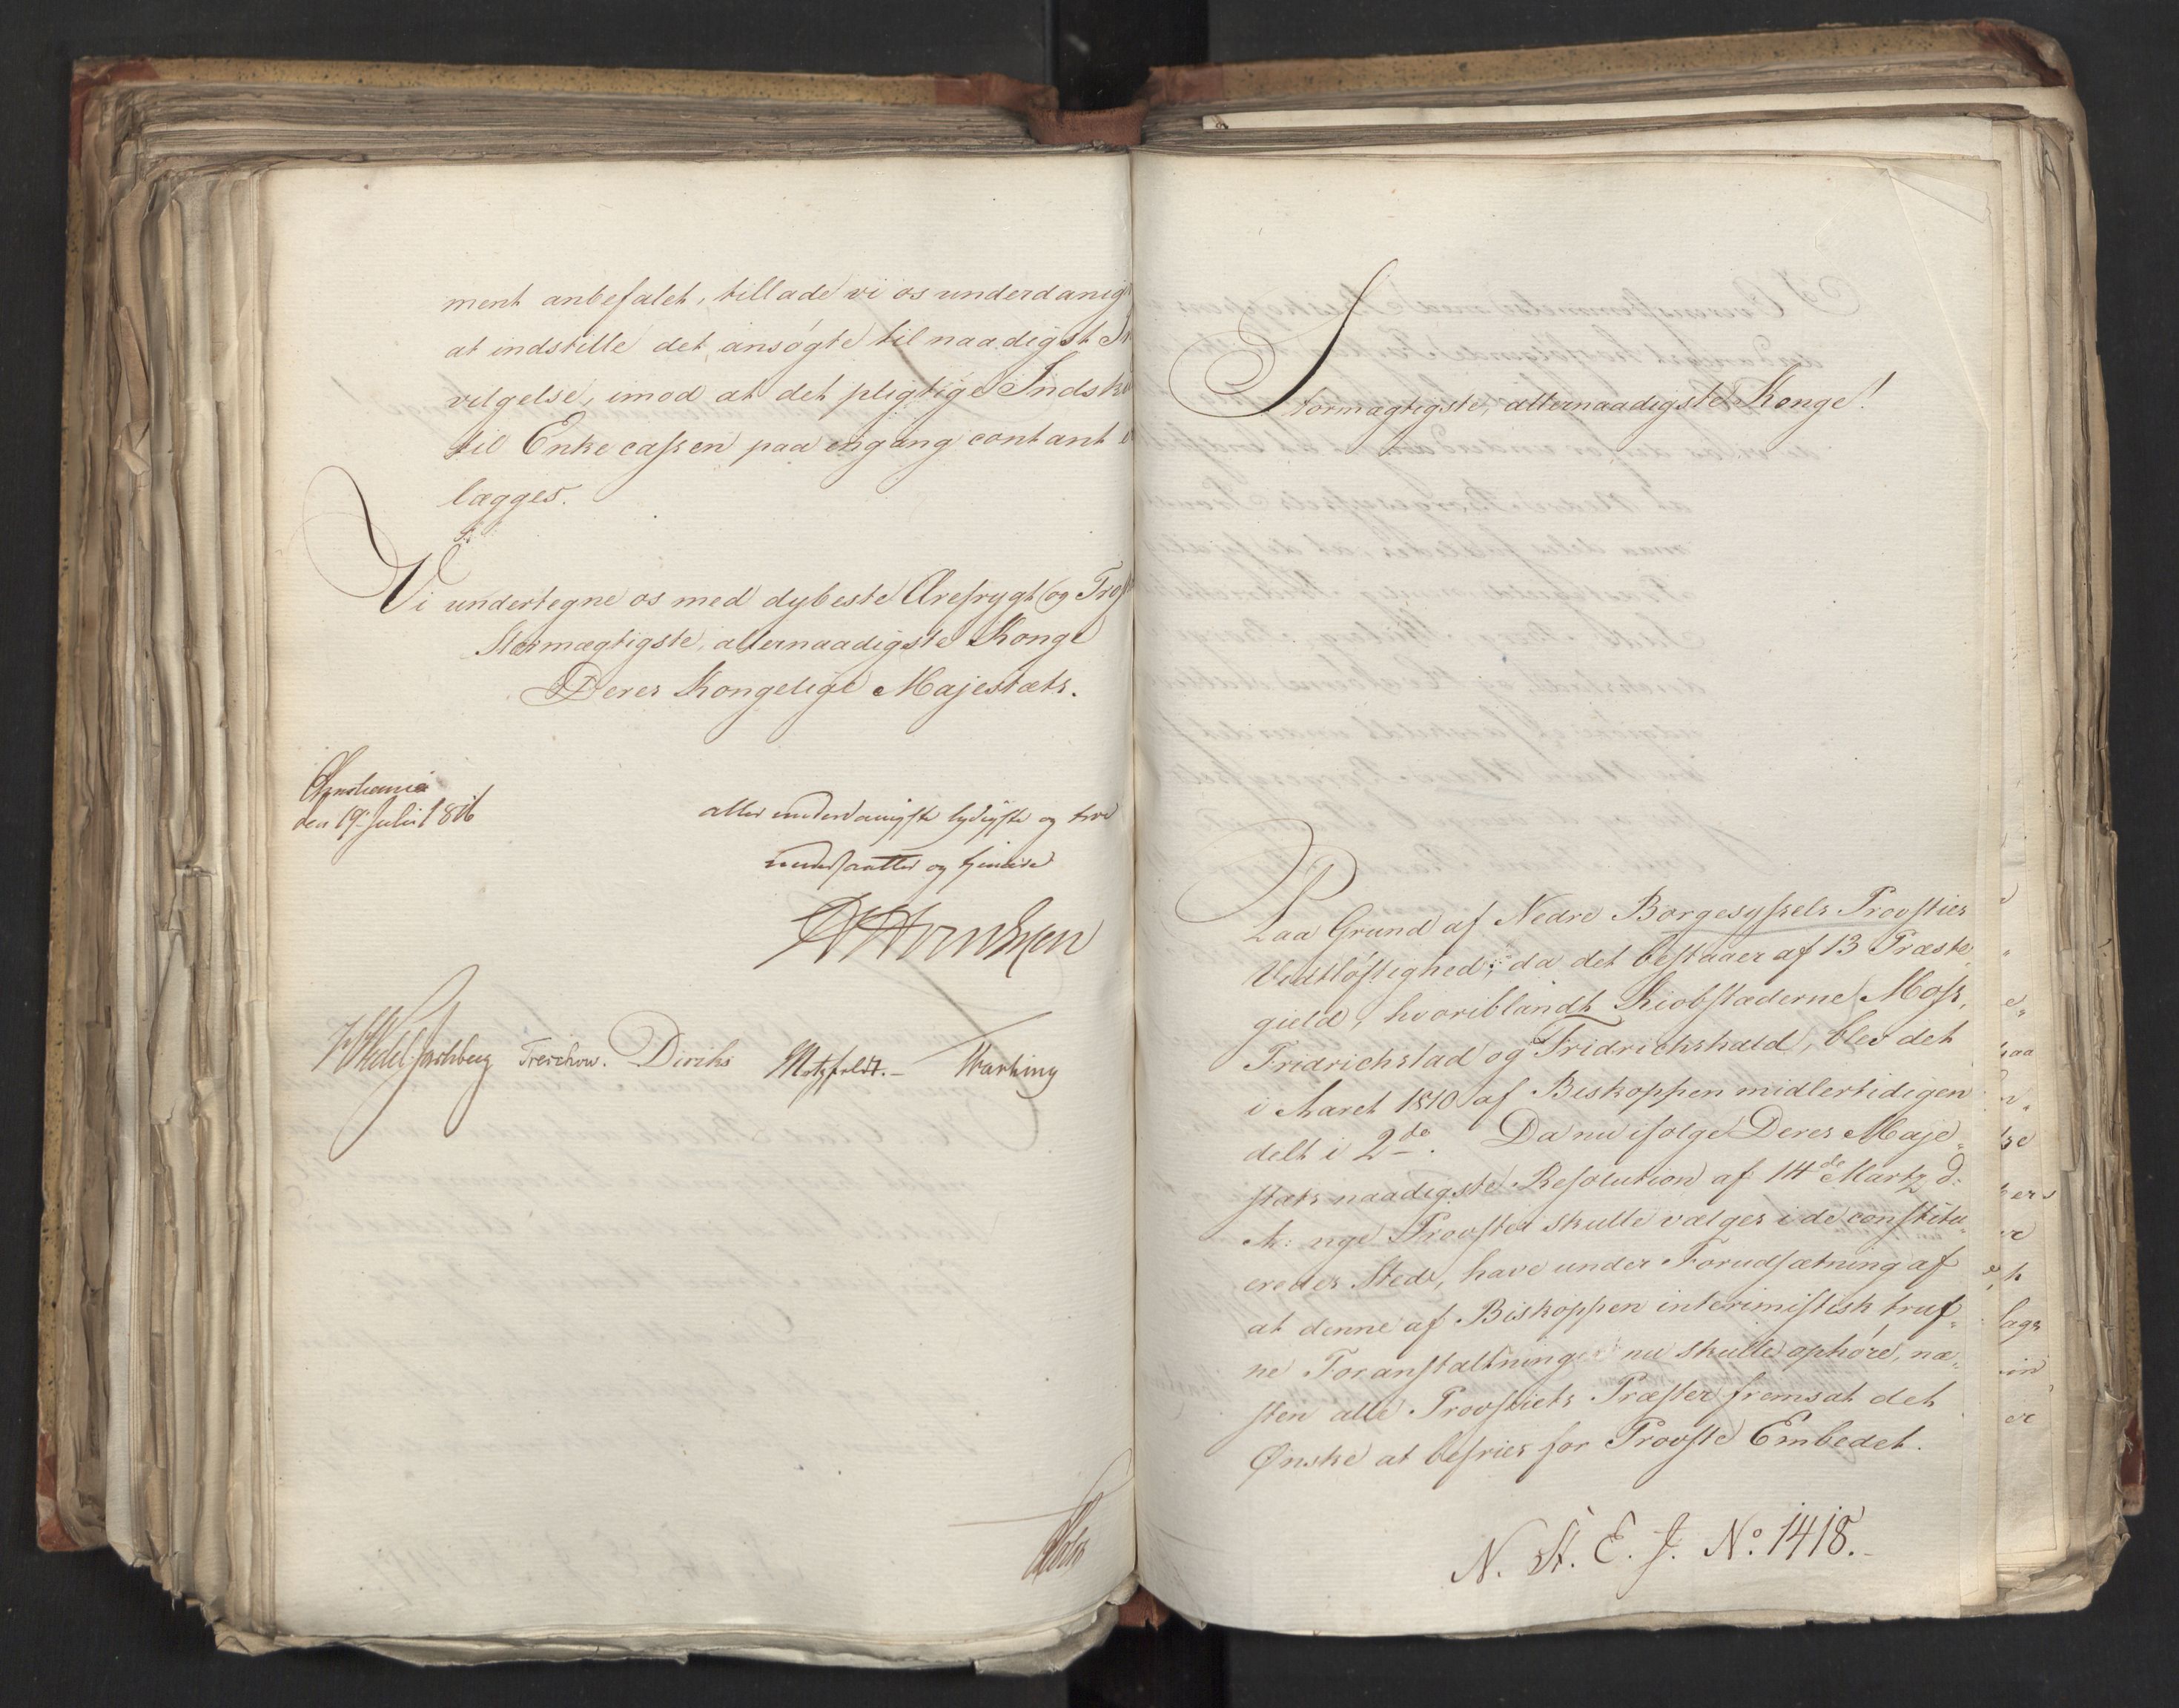 ment anbefalet, tillade vi os underdanig
at indstille det ansøgte til naadigst
vilgelse, imod at det pligtige Indsk
til Enkecassen paa engang contant
lægges.
Vi undertegne os med dybeste Ærefrygt og
Stormægtigste, allernaadigste Konge
Deres Kongelige Majestæts.
Christiania
den 19 Juli 1816
allerunderdanigste lydigste og troe
undersaatter og tjenere
Wedel Jarlsberg Treschow. Diriks Motzfeldt. –
Stormægtigste, allernaadigste Konge!
Paa Grund af Nedre Borgesyssels Provsties
Vidtløftighed, da det bestaaer af 13 Præste
gield, hvoriblandt Kiøbstæderne Moss,
Fridrichstad og Fridrichshald, blev det
i Aaret 1810 af Biskoppen midlertidigen
delt i 2de. Da nu ifølge Deres Maje=
stæts naadigste Resolution af 14de Martz d:
A: nye Provster skulle vælges i de constitu=
eredes Sted, have under Forudsætning af
at denne af Biskoppen interimistisk truf=
ne Foranstaltning nu skulle ophøre, næ=
sten alle Provstiets Præster fremsat det
Ønske at befries for Provste Embedet.
N. A. E. J. No. 1418.